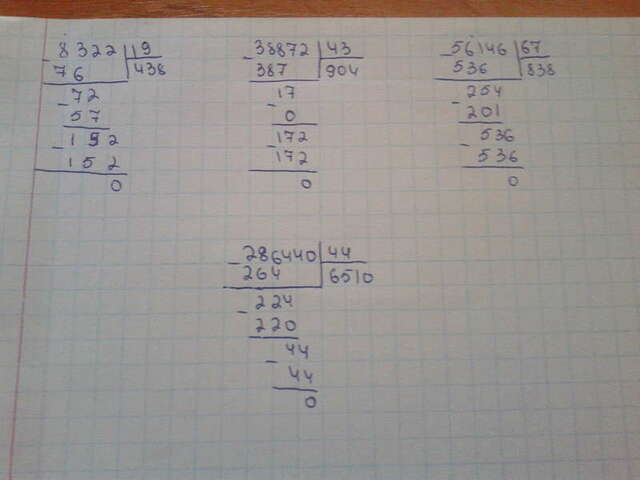 - 8322 | 19
76 | 438
- 72
57
- 152
152
0
- 38872 | 43
387 | 904
- 17
0
- 172
172
0
- 56146 | 67
536 | 838
- 254
201
- 536
536
0
- 286440 | 44
264 | 6510
- 224
220
- 44
44
0